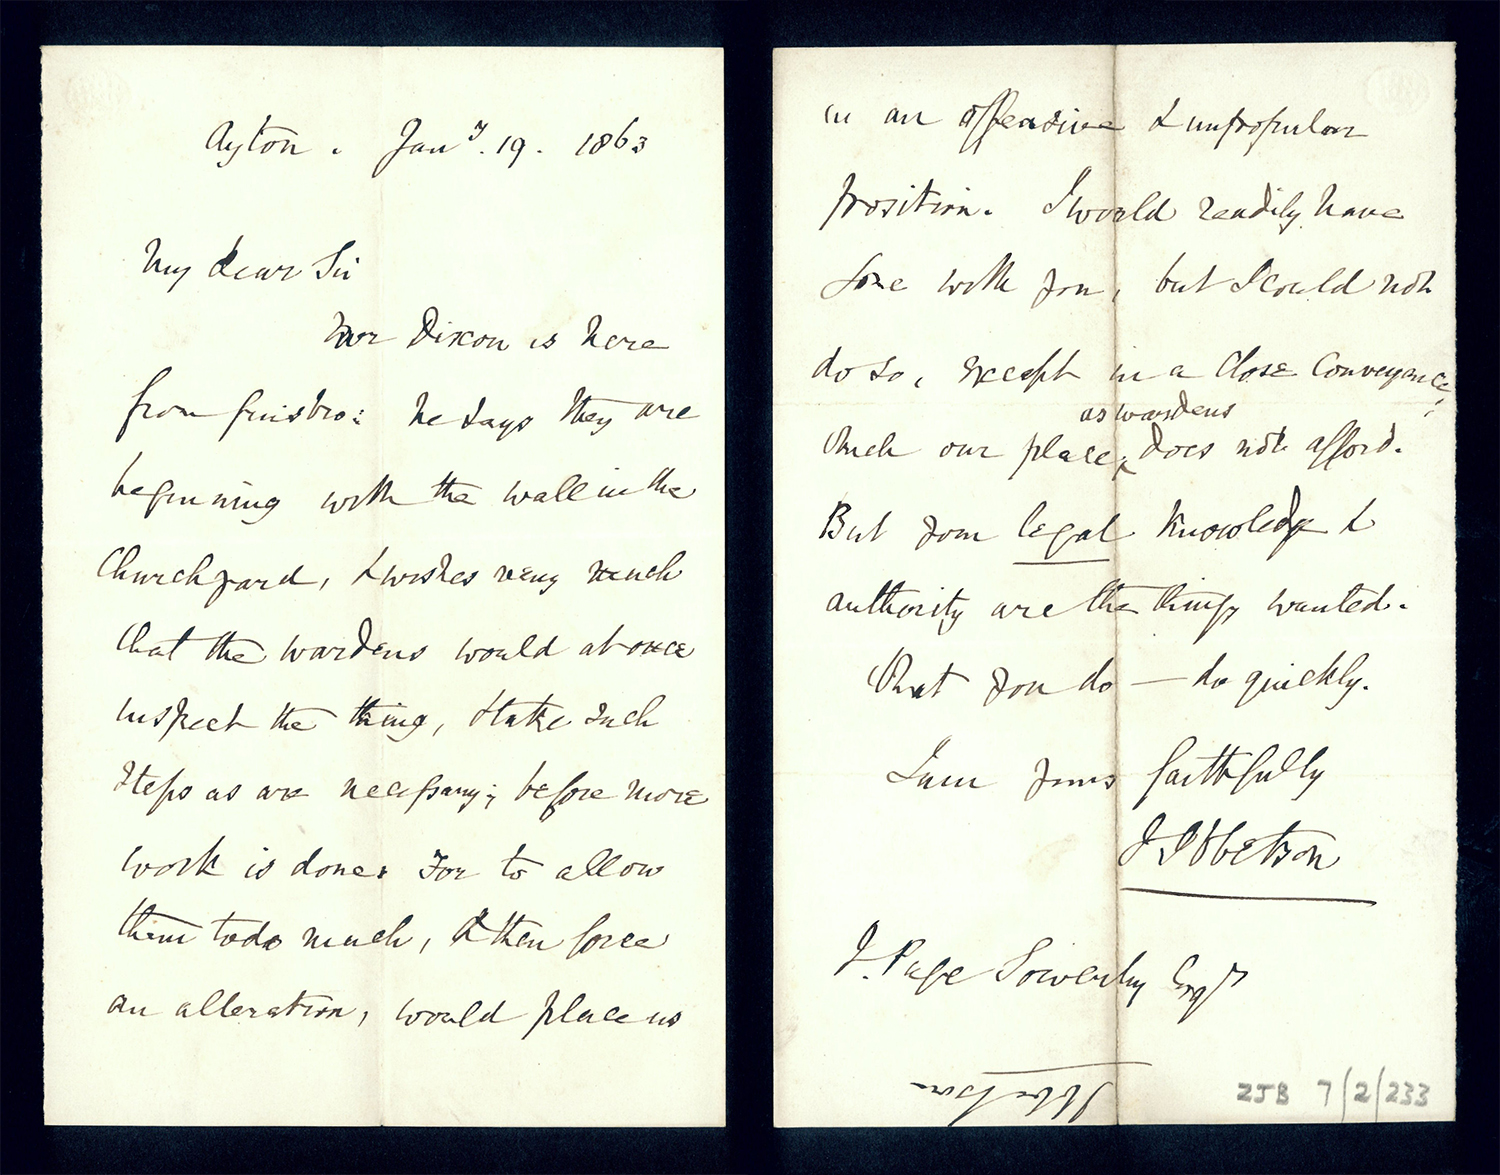 Ayton. Jany. 19. 1863
My dear Sir
Mr Dixon is here
from Guisbro: he says they are
beginning with the wall in the
Churchyard, & wishes very much
that the wardens would at once
inspect the thing, & take such
steps as are necessary; before more
work is done. For to allow
them to do much, & then force
an alteration, would place us
in an offensive & unpopular
position. I would readily have
gone with you, but I could not
do so, except in a Close Conveyance;
as wardens
Which our place, does not afford.
But your legal knowledge &
authority are the things wanted.
What you do — do quickly.
I am yours faithfully
J Ibbetson
J. Page Sowerby Esqr
Ibbetson
ZJB 7/2/233